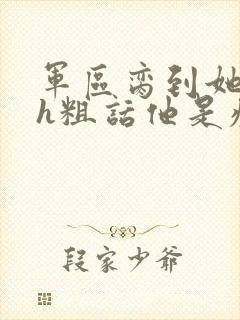 軍區寵到她
h粗話他是
段家少爺